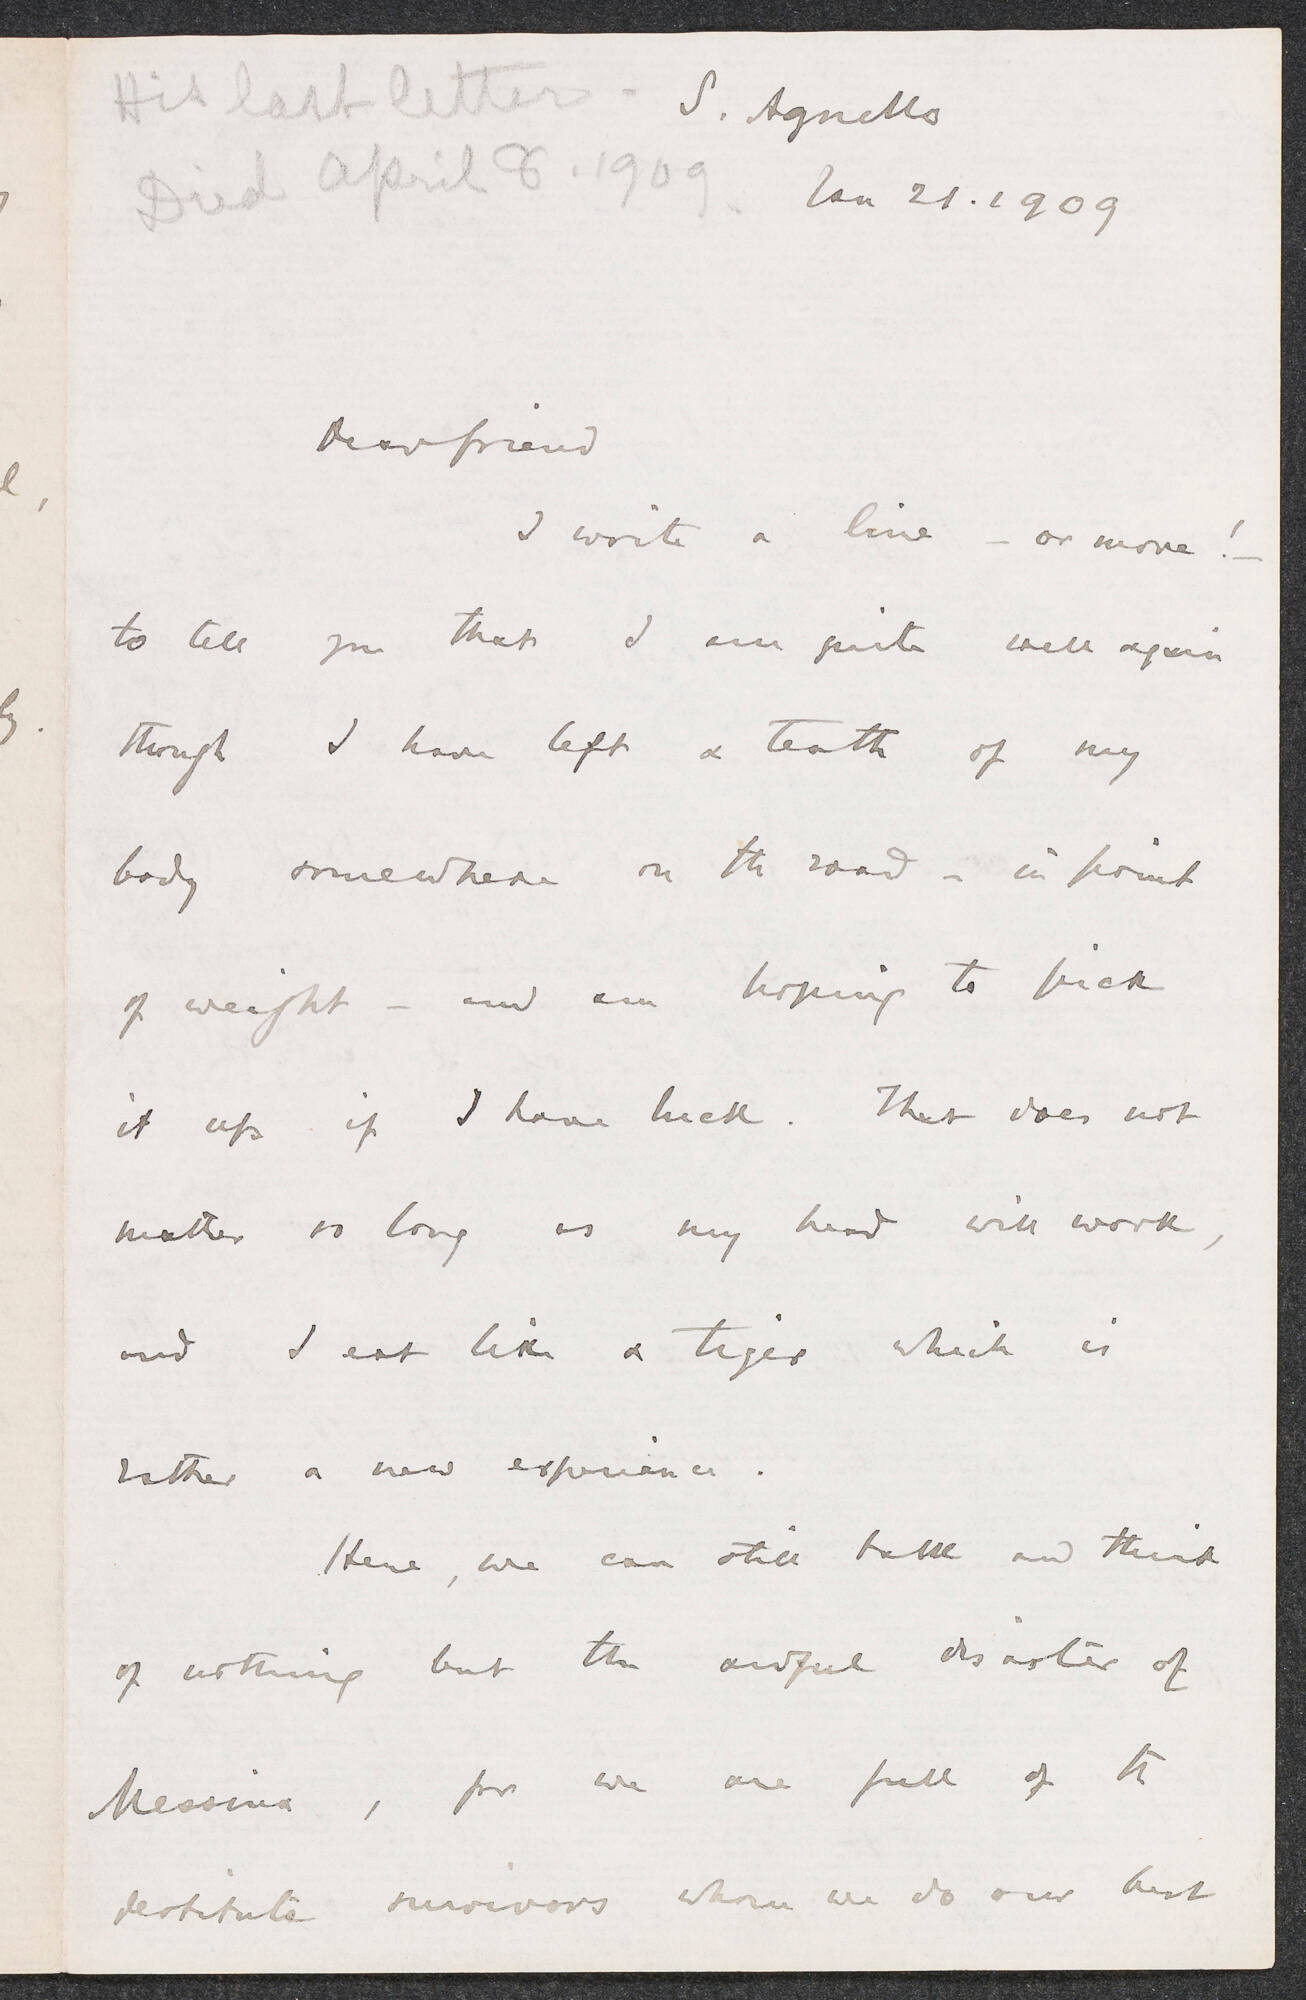 His last letter -
Died April 8. 1909.
S. Agnello
Jan 21. 1909
Dear friend
I write a line - or more! -
to tell you that I am quite well again
though I have left a tenth of my
body somewhere on the road - in point
of weight - and am hoping to pick
it up if I have luck. That does not
matter so long as my head will work,
and I eat like a tiger which is
rather a new experience.
Here, we can still talk and think
of nothing but the awful disaster of
Messina, for we are full of the
destitute survivors whom we do our best
l,
ly.